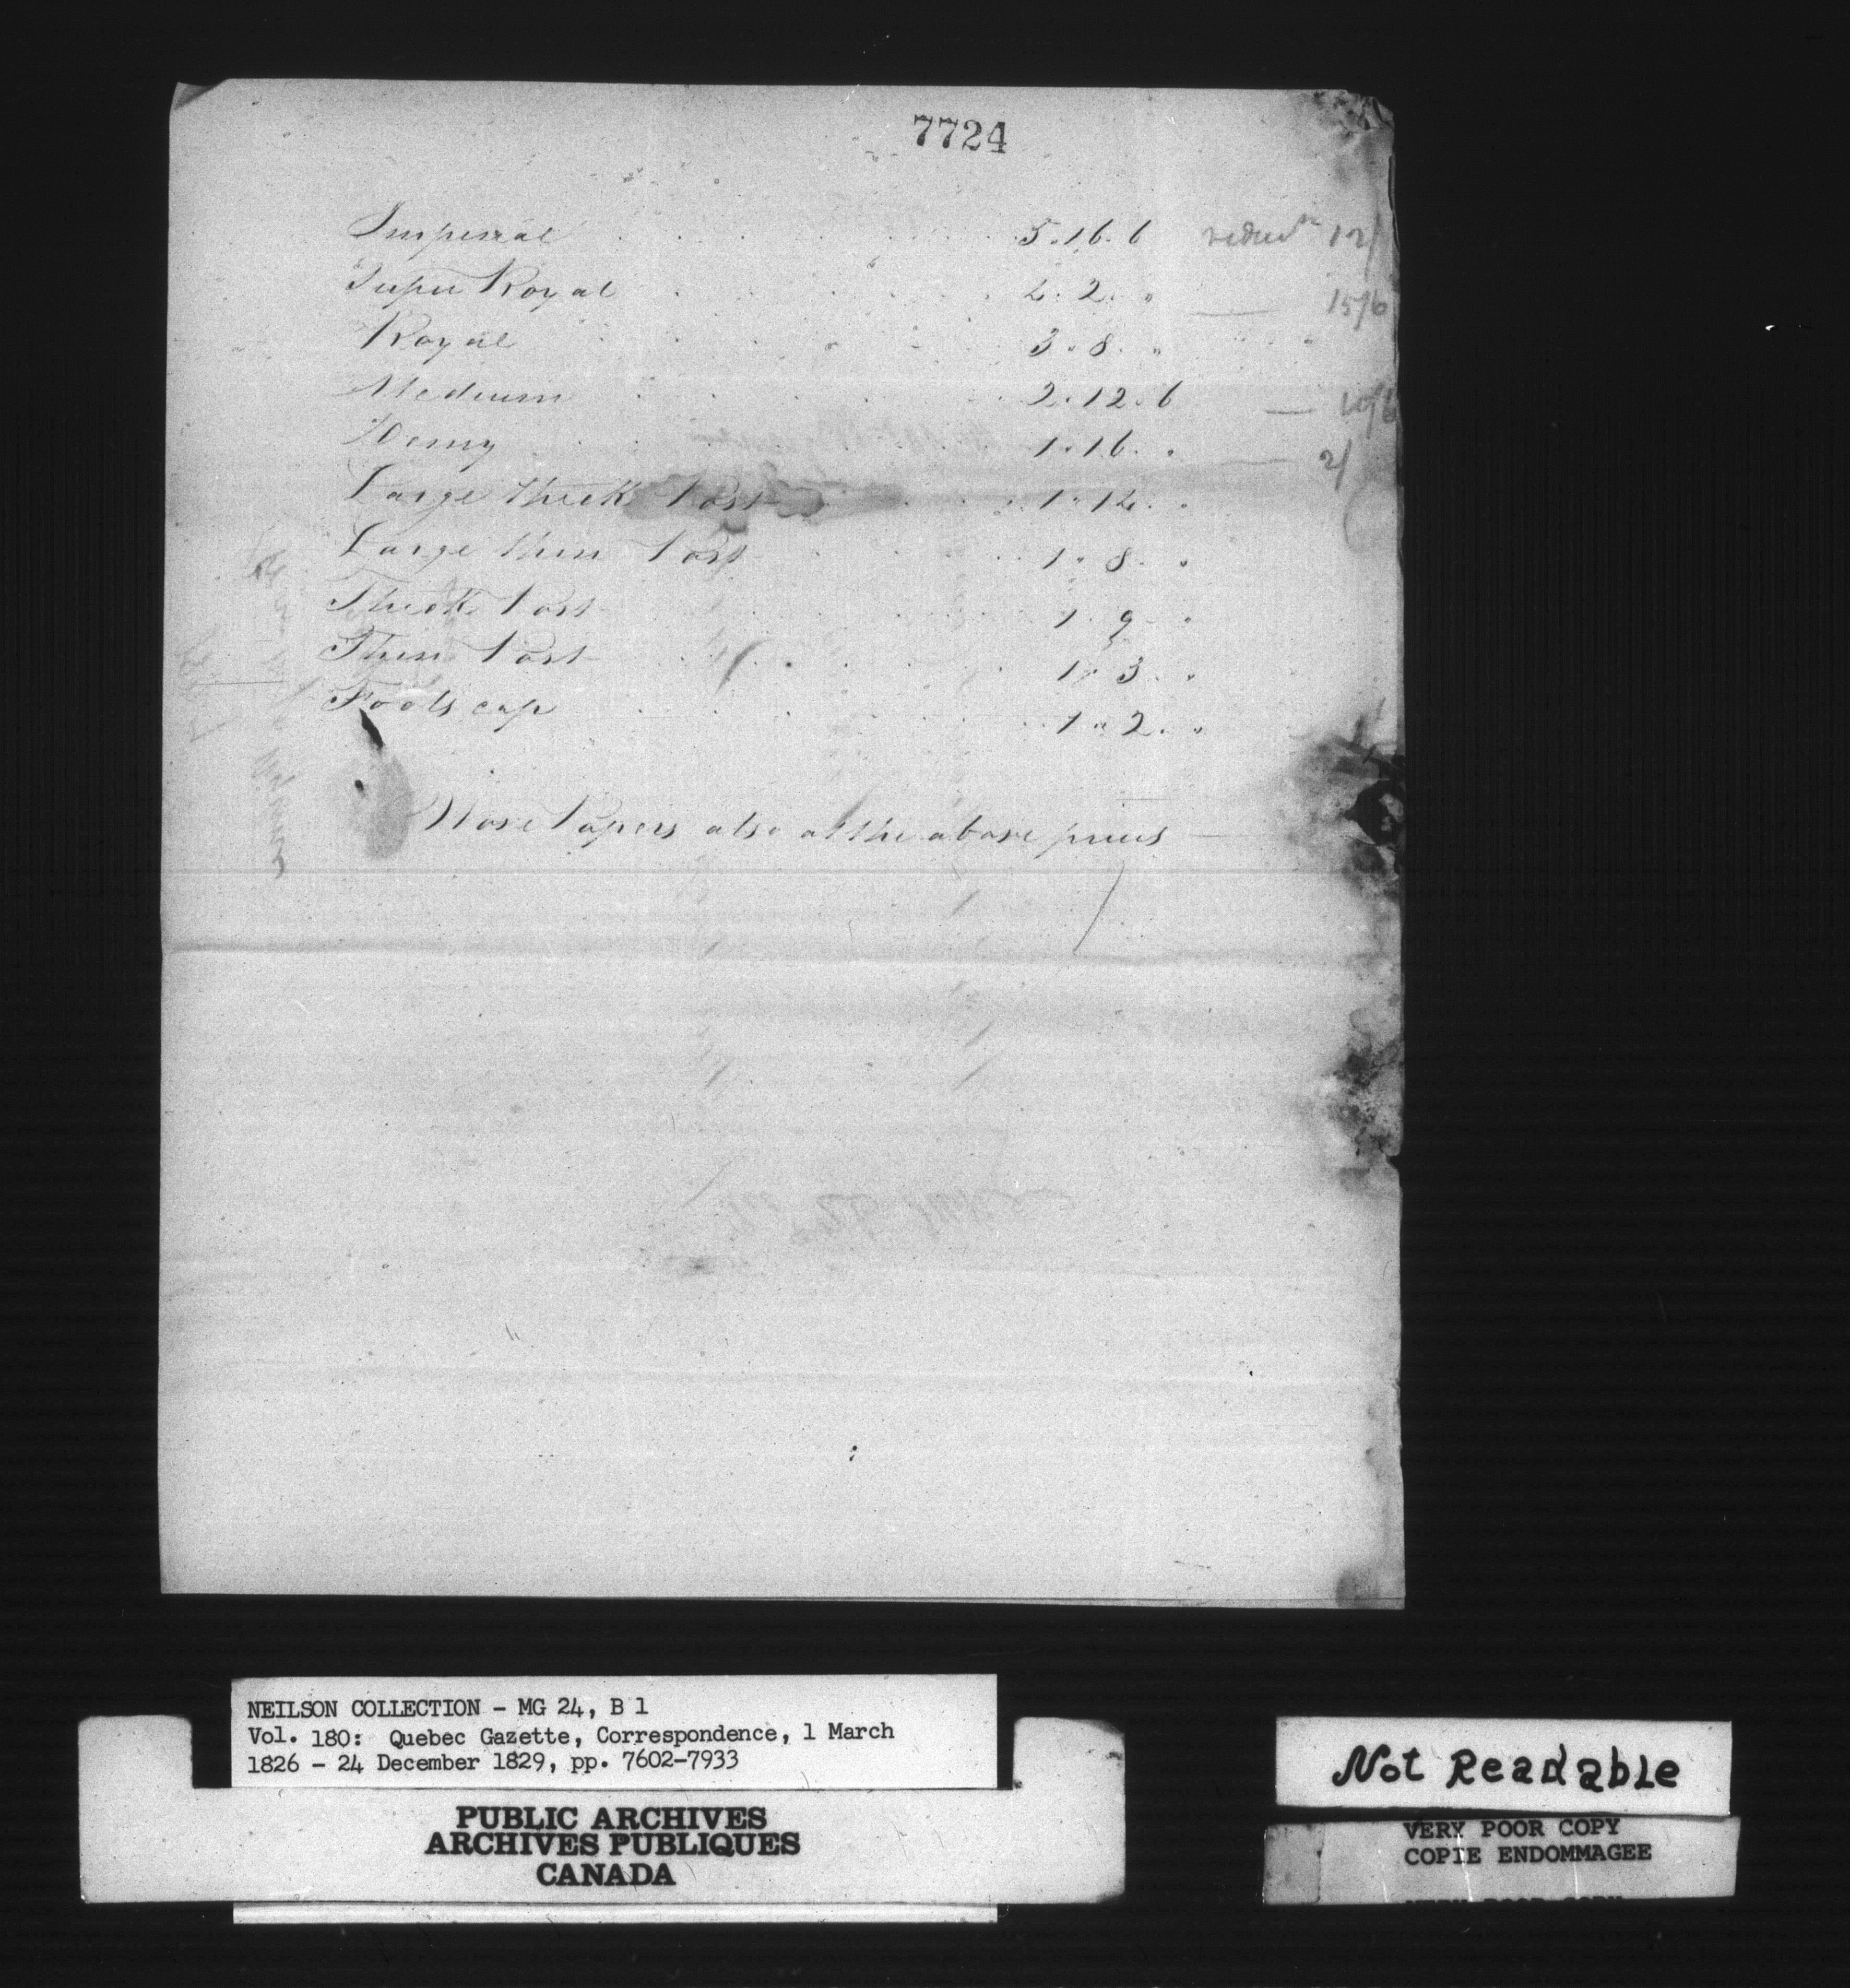 7724
Imperial . . . . . . . 5.16.6 reducn 12/
Super Royal . . . . . . . 4.2.„ — 15/6
Royal . . . . . . . 3.8.„
Medium . . . . . . . 2.12.6 — 10/6
Demy . . . . . . . 1.16.„ — 2/
Large thick Post . . . . . 1.14.„
Large thin Post . . . . . 1.8.„
Thick Post . . . . . 1.9.„
Thin Post . . . . . 1.3.„
Foolscap . . . . . 1.2.„
Wove Papers also at the above prices —
NEILSON COLLECTION - MG 24, B 1
Vol. 180: Quebec Gazette, Correspondence, 1 March
1826 - 24 December 1829, pp. 7602-7933
PUBLIC ARCHIVES
ARCHIVES PUBLIQUES
CANADA
Not Readable
VERY POOR COPY
COPIE ENDOMMAGEE